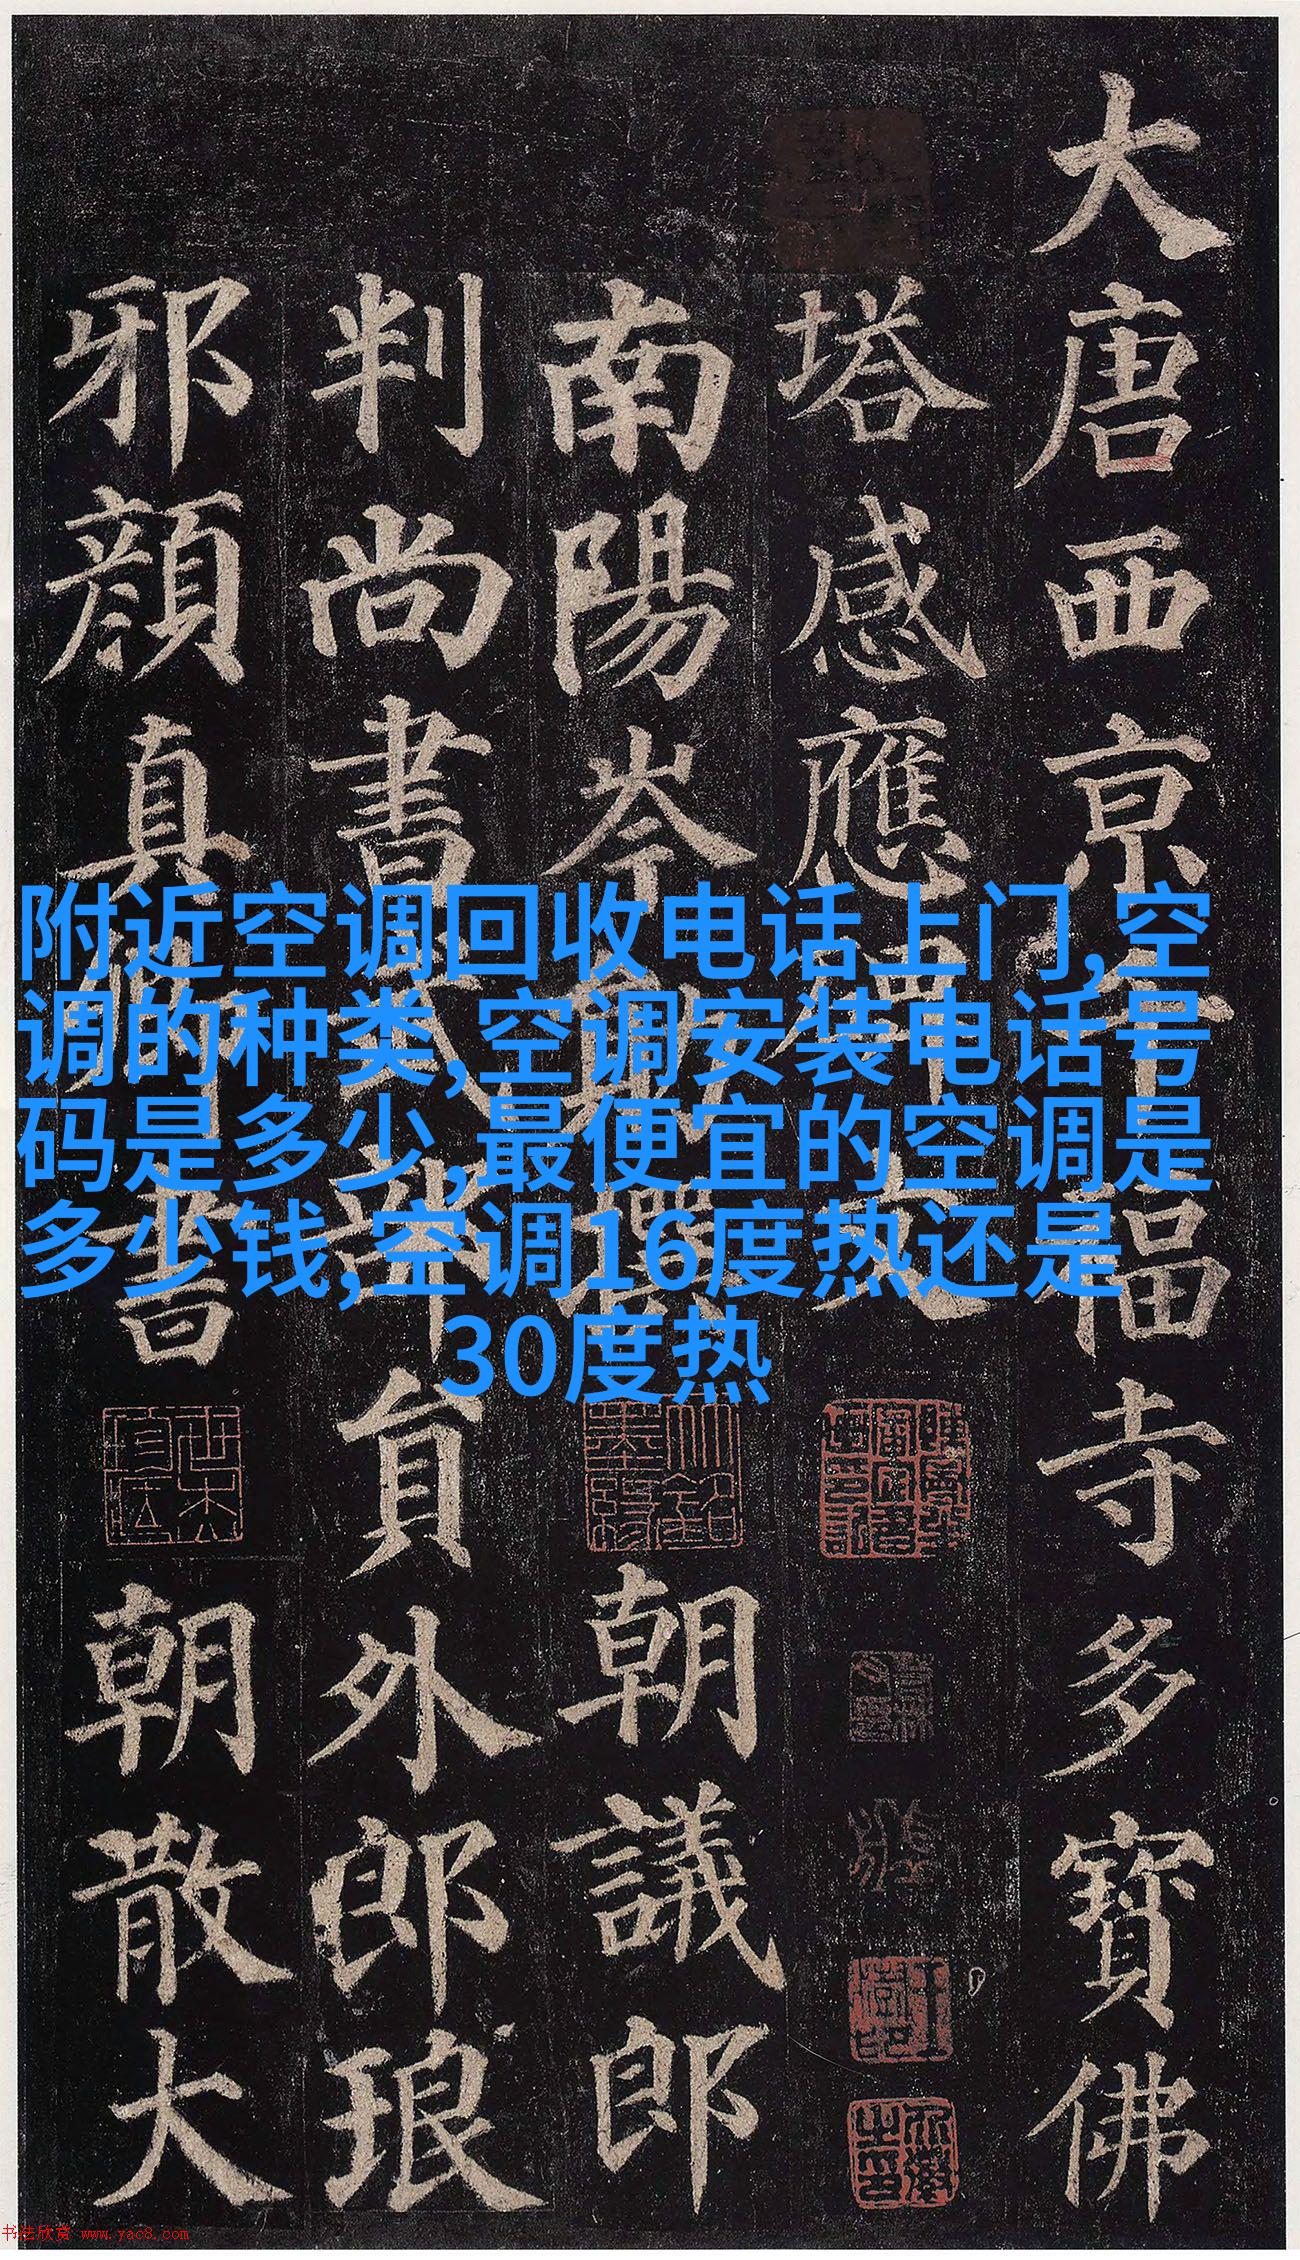 大唐西京千福寺多寶佛
塔感應碑文
南陽岑勛撰朝議郎
判尚書武部貟外郎琅
邪顏真卿書朝散大
附近空调回收电话上门,空
调的种类,空调安装电话号
码是多少,最便宜的空调是
多少钱,空调16度热还是
30度热
书法欣赏 www.yac8.com